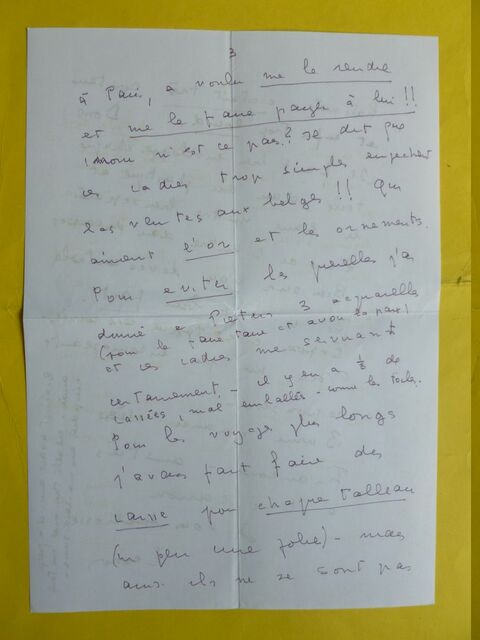 3
à Paris, a voulu me le rendre
et me le faire payer à lui!!
n'est ce pas? Je dit que
ces cadres trop simples empechent
les ventes aux belges!! Qui
aiment l'or et les ornements.
Pour eviter les querelles j'ai
donné a Pieters 3 acquarelles
(pour le faire taire et avoir la paix)
et ces cadres me serviront
certainement - il y en a 1/2 de
cassées, mal emballés - comme les toiles.
Pour les voyages plus longs
j'avais fait faire des
caisse pour chaque tableau
(en plus une folie) - mais
ainsi ils ne se sont pas